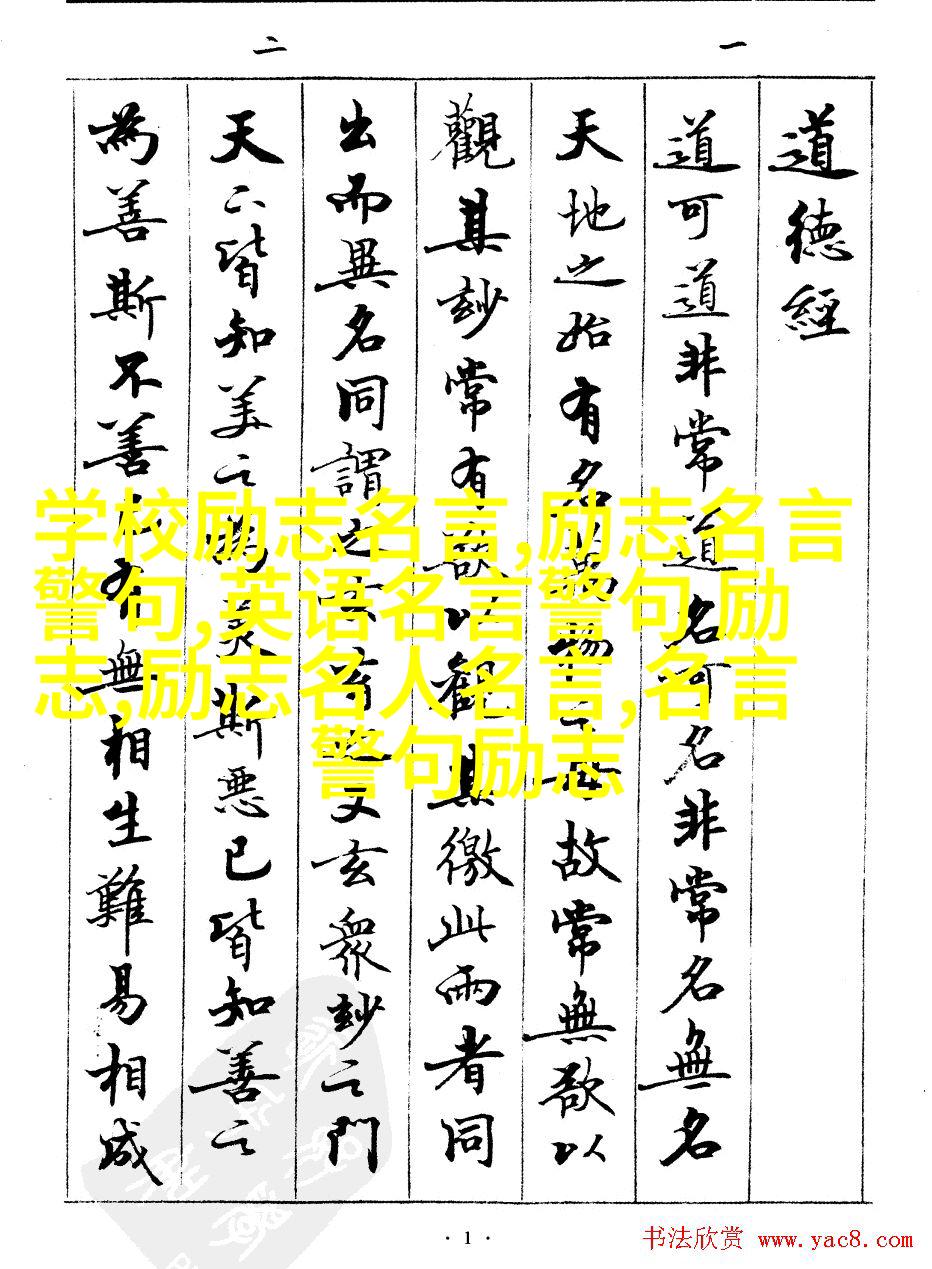 一
二
道德經
道可道非常道名可名非常名無名
天地之始有名萬物之母故常無欲以
觀其玅常有欲以觀其徼此兩者同
出而異名同謂之玄之又玄衆玅之門
天下皆知美之為美斯惡已皆知善之
為善斯不善已有無相生難易相成
学校励志名言,励志名言
警句,英语名言警句励
志,励志名人名言,名言
警句励志
· 1 ·
书法欣赏 www.yac8.com